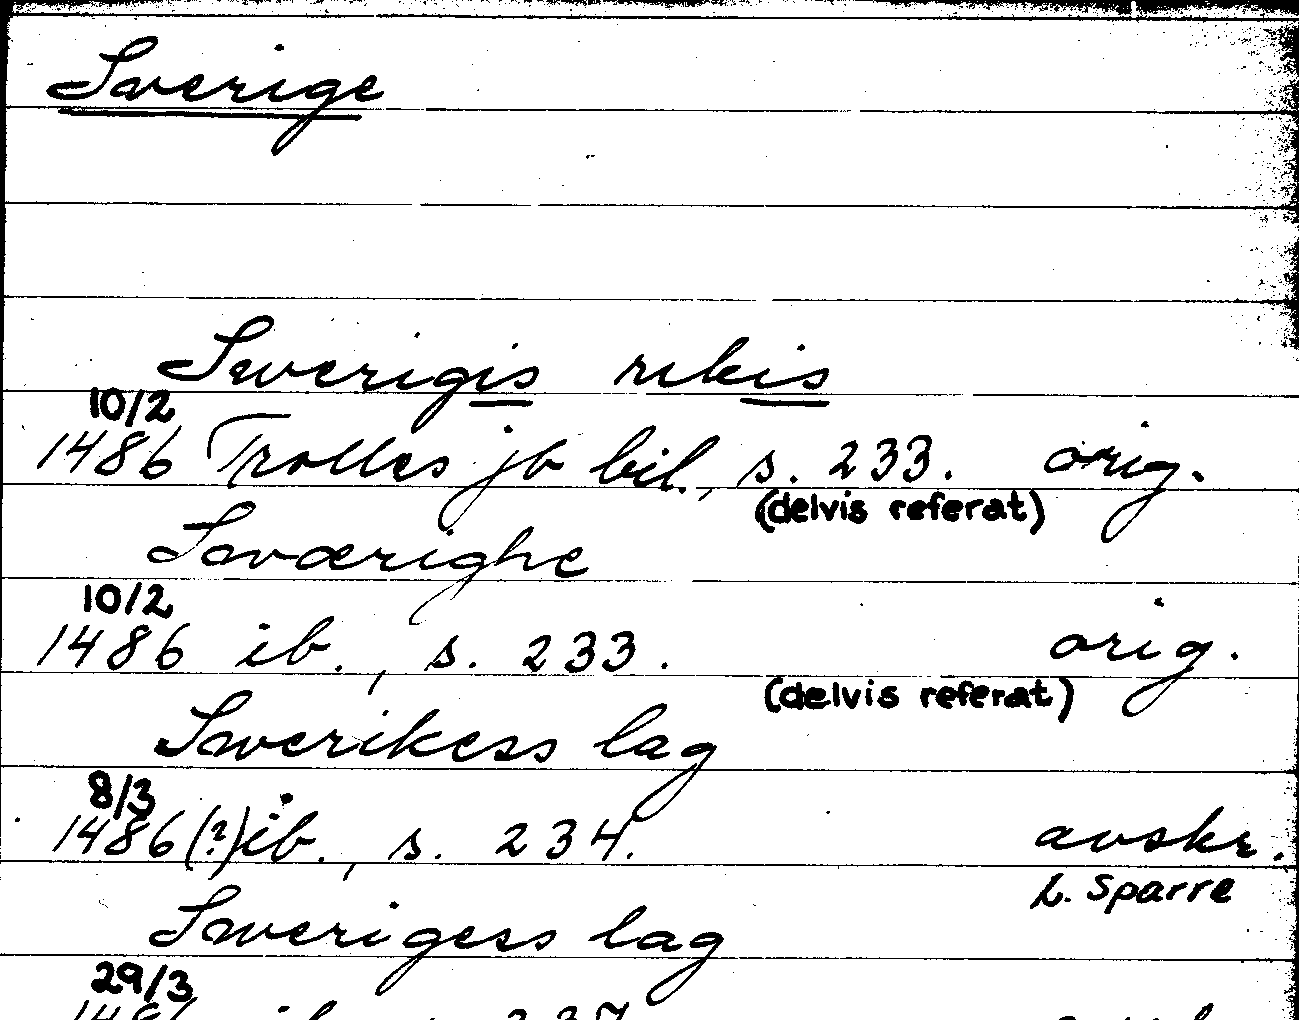 Sverige
Swerigis rikis
10/2
1486 Trolles jb bil., s. 233. orig.
(delvis referat)
Swærighe
10/2
1486 ib., s. 233. orig.
(delvis referat)
Swerikess lag
8/3
1486 (?) ib., s. 234. avskr.
L. Sparre
Swerigess lag
29/3